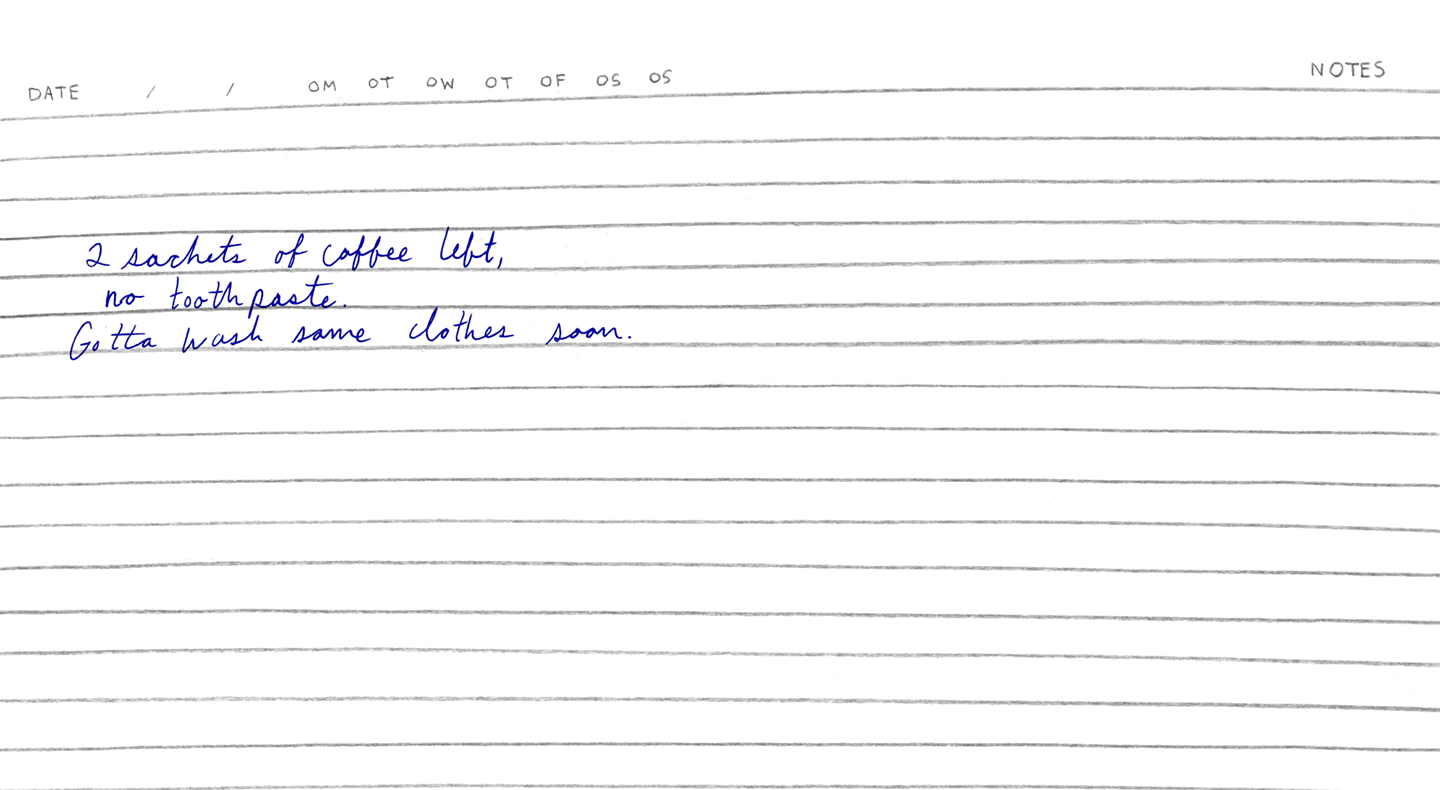 DATE / / OM OT OW OT OF OS OS NOTES
2 sachets of coffee left,
no toothpaste.
Gotta wash some clothes soon.